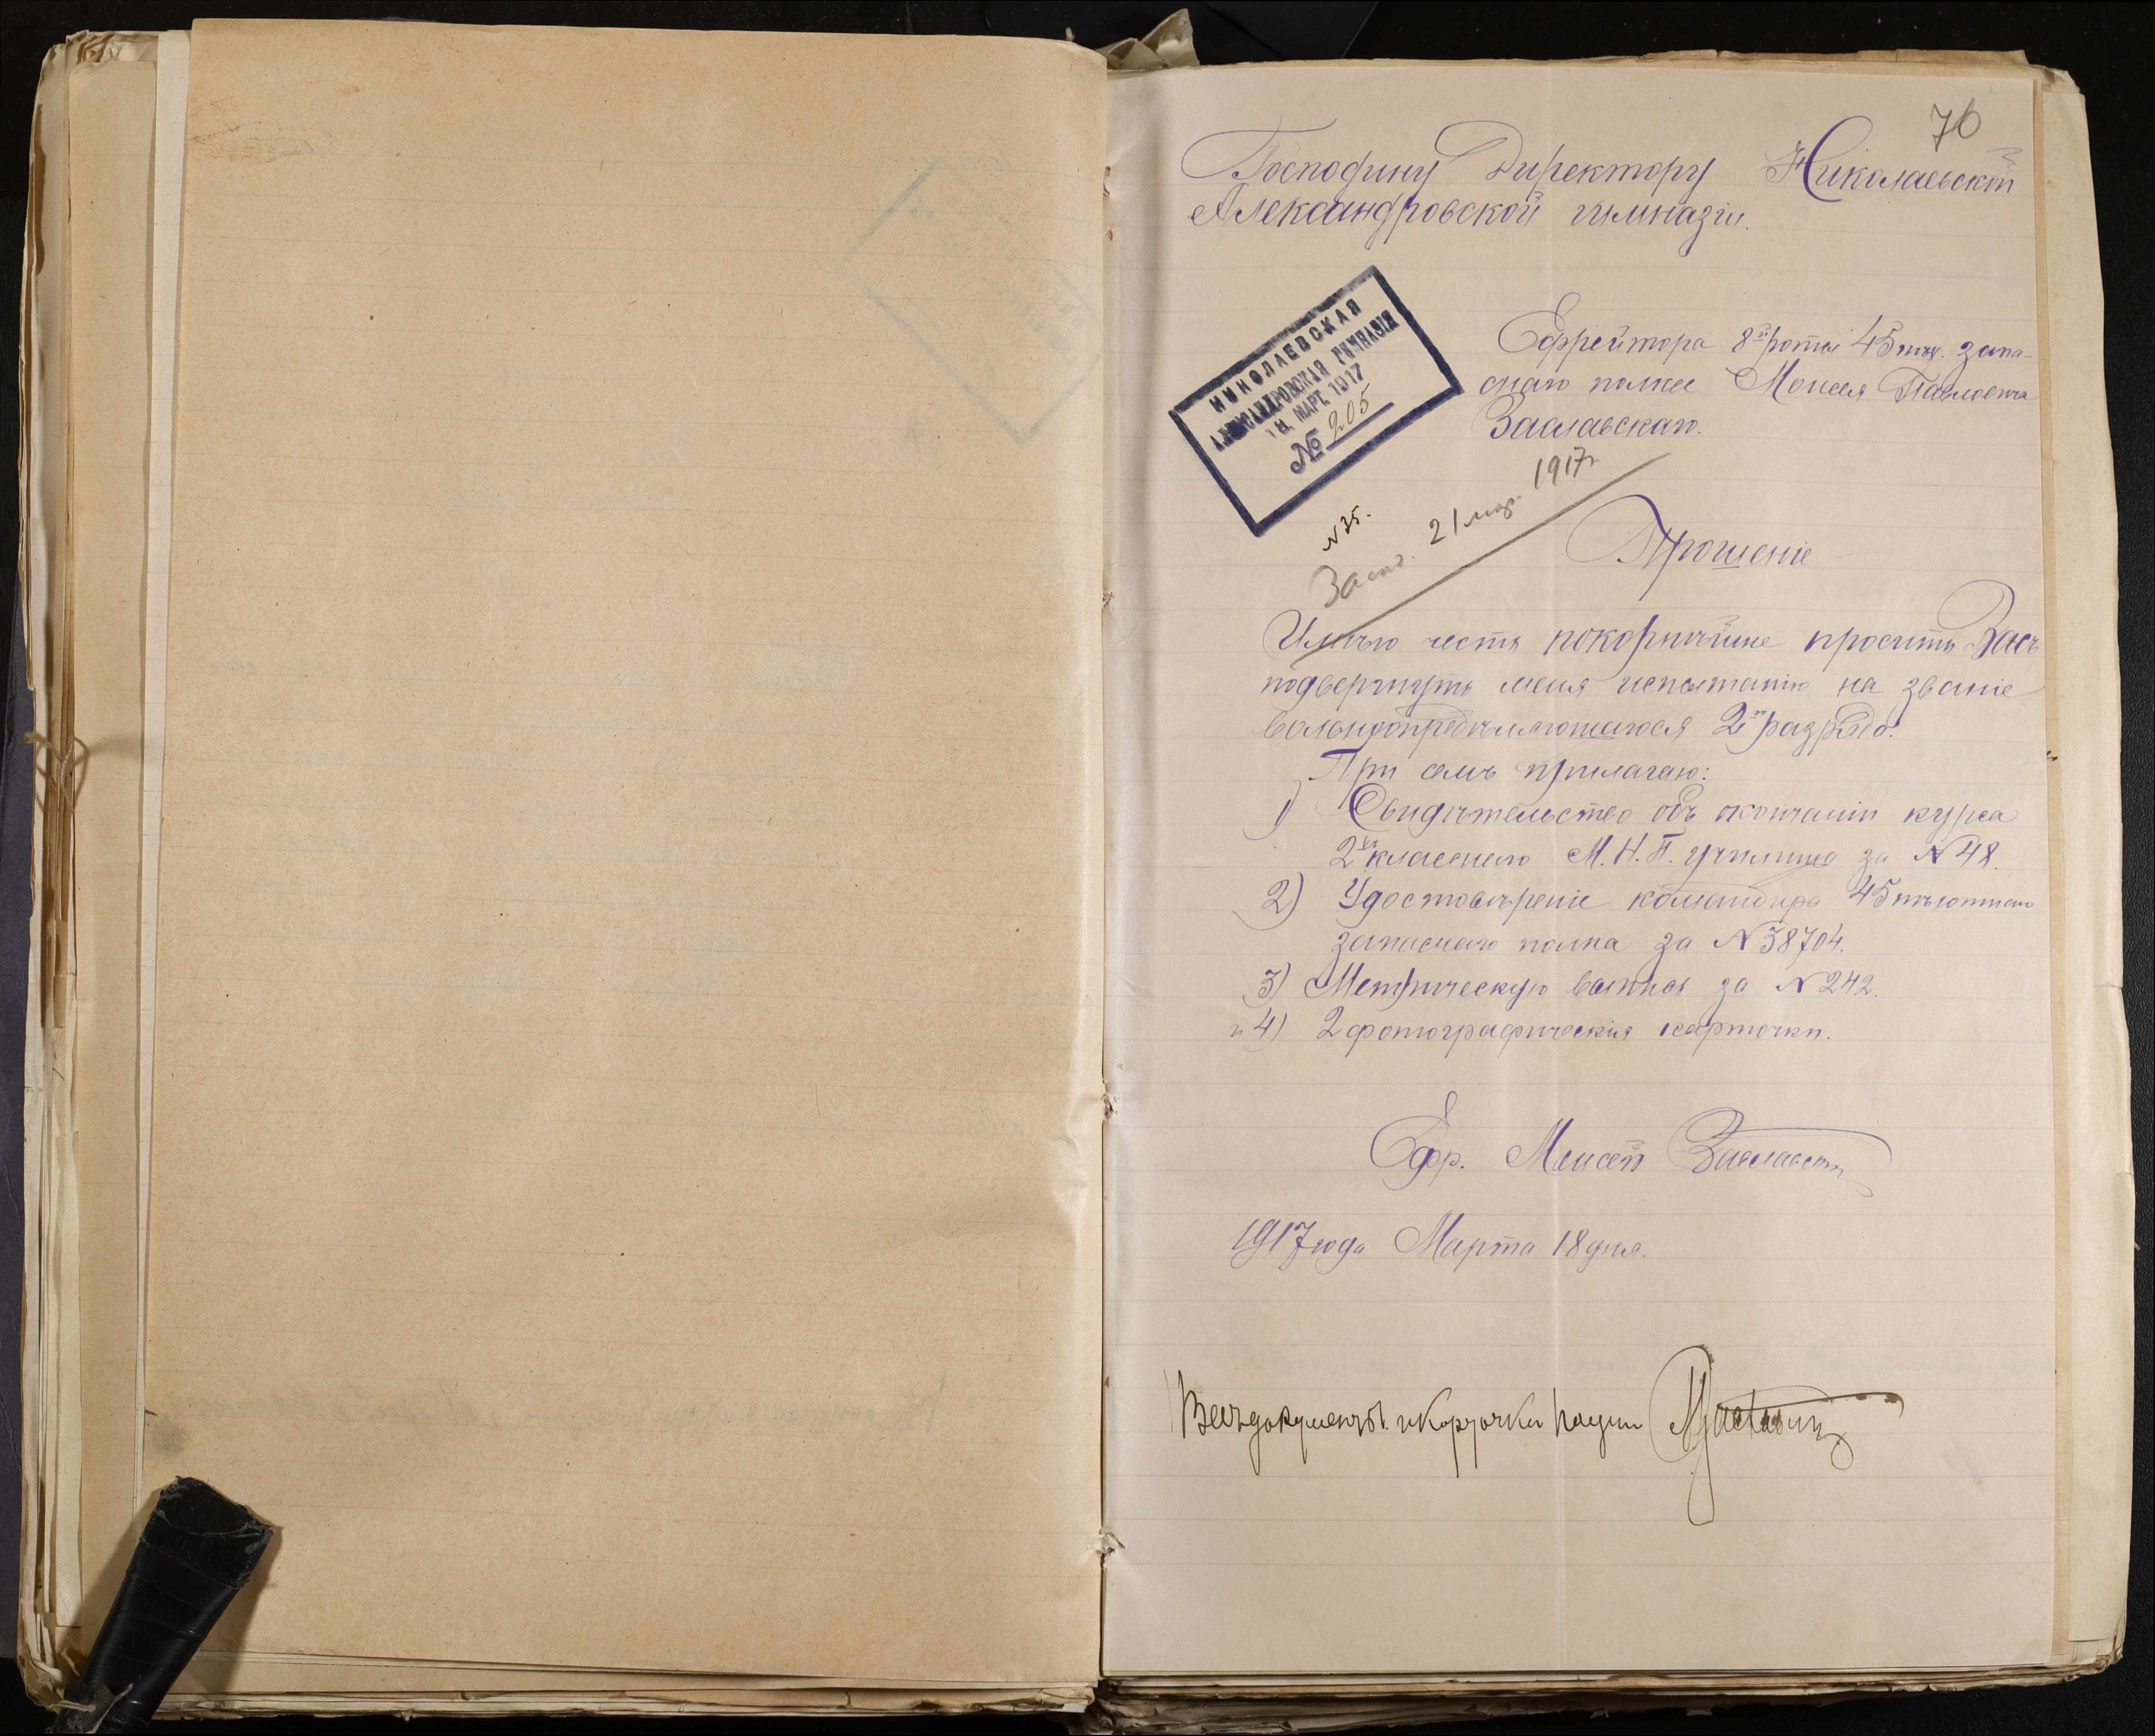 76
Господину Директору Николаевской
Александровской гимназіи.
НИКОЛАЕВСКАЯ
АЛЕКСАНДРОВСКАЯ ГИМНАЗІЯ
МАРТ. 1917
№ 205
Ефрейтора 8й роты 45 пѣх. запа-
снаго полка Моисея Павловича
Заславскаго.
N 35.
21 мар. 1917 г.
Прошеніе
Имѣю честь покорнѣйше просить Васъ
подвергнуть меня испытанію на званіе
вольноопредѣляющагося 2го разряда.
При семъ прилагаю:
1) Свидѣтельство объ окончаніи курса
2хкласснаго М. Н. П. училища за N 48.
2) Удостовѣреніе командира 45 пѣхотнаго
запаснаго полка за N 38704.
3) Метрическую выпись за N 242.
и 4) 2 фотографическія карточки.
Ефр. Моисей Заславскій
1917 года Марта 18 дня.
документы и карточки